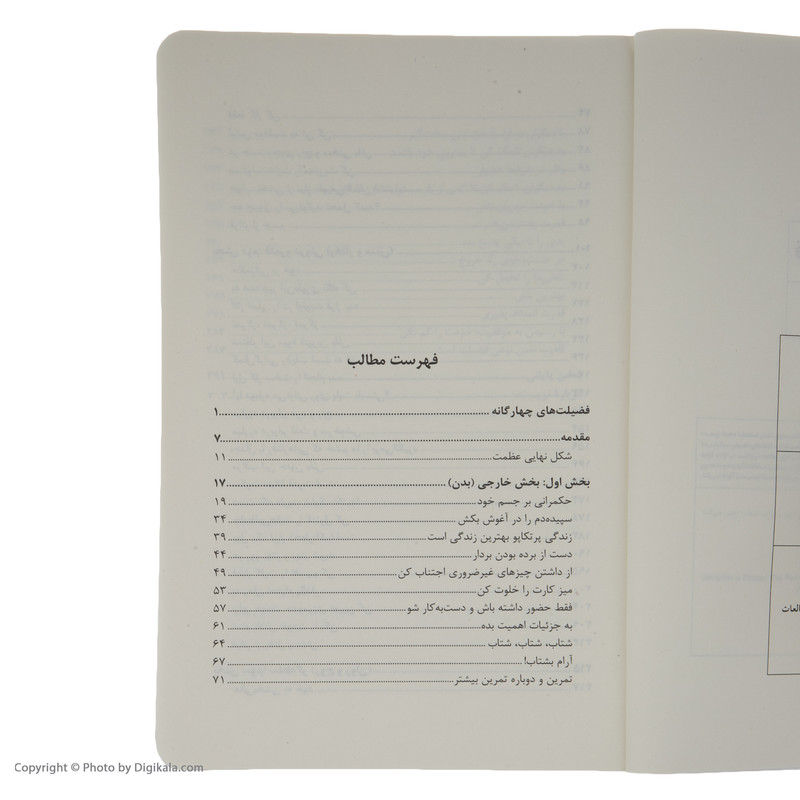 فهرست مطالب
فضیلت‌های چهارگانه ........ ۱
مقدمه ........ ۷
شکل نهایی عظمت ........ ۱۱
بخش اول: بخش خارجی (بدن) ........ ۱۷
حکمرانی بر جسم خود ........ ۱۹
سپیده‌دم را در آغوش بکش ........ ۳۴
زندگی پرتکاپو بهترین زندگی است ........ ۳۹
دست از برده بودن بردار ........ ۴۴
از داشتن چیزهای غیرضروری اجتناب کن ........ ۴۹
میز کارت را خلوت کن ........ ۵۳
فقط حضور داشته باش و دست‌به‌کار شو ........ ۵۷
به جزئیات اهمیت بده ........ ۶۱
شتاب، شتاب، شتاب ........ ۶۴
آرام بشتاب! ........ ۶۷
تمرین و دوباره تمرین بیشتر ........ ۷۱
Copyright © Photo by Digikala.com